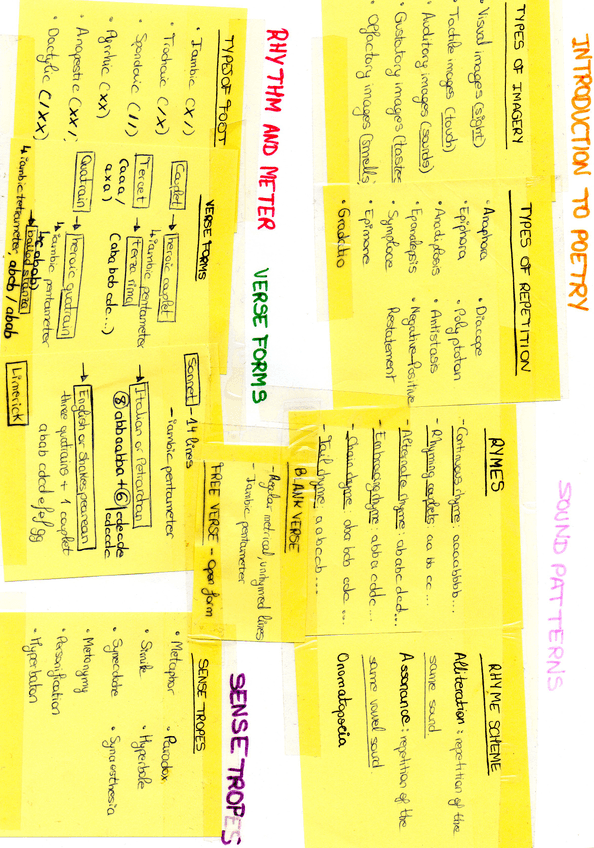 INTRODUCTION TO POETRY
TYPES OF IMAGERY
• Visual images (sight)
• Tactile images (touch)
• Auditory images (sounds)
• Gustatory images (tastes
• Olfactory images (smells)
TYPES OF REPETITION
• Anaphora
• Epiphora
• Anadiplosis
• Epanalepsis
• Symploce
• Epimone
• Gradatio
• Diacope
• Polyptoton
• Antistasis
• Negative-positive
Restatement
SOUND PATTERNS
RYMES
- Continuous rhyme: aaaabbbb...
- Rhyming couplets aa bb cc ...
- Alternate rhyme: ab abc dcd...
- Embracing rhyme: abba cddc...
- Chain rhyme: aba bcb cdc ...
- Tail rhyme: a a b c c b ...
RHYME SCHEME
Alliteration: repetition of the
same sound
Assonance: repetition of the
same vowel sound
Onomatopoeia
RHYTHM AND METER
TYPES OF FOOT
• Iambic (X/)
• Trochaic (/X)
• Spondaic (//)
• Pyrrhic (XX)
• Anapestic (XX/)
• Dactylic (/XX)
VERSE FORMS
VERSE FORMS
Couplet → heroic couplet
↳ iambic pentameter
Tercet → terza rima
(aaa/ (aba bcb cdc...)
axa)
Quatrain → heroic quatrain
↳ iambic pentameter
→ ballad stanza
(4c abab)
↳ iambic tetrameter; abcb / abab
Sonnet - 14 lines
- iambic pentameter
→ Italian or Petrarchan
⑧ abbaabba + ⑥ cdecde
cdcdc
→ English or Shakespearean
- three quatrains + 1 couplet
abab cdcd efef gg
Limerick
BLANK VERSE
- Regular metrical, unrhymed lines
- Iambic pentameter
FREE VERSE - open form
SENSE TROPES
SENSE TROPES
• Metaphor
• Simile
• Synecdoche
• Metonymy
• Personification
• Hyperbaton
• Paradox
• Hyperbole
• Synaesthesia